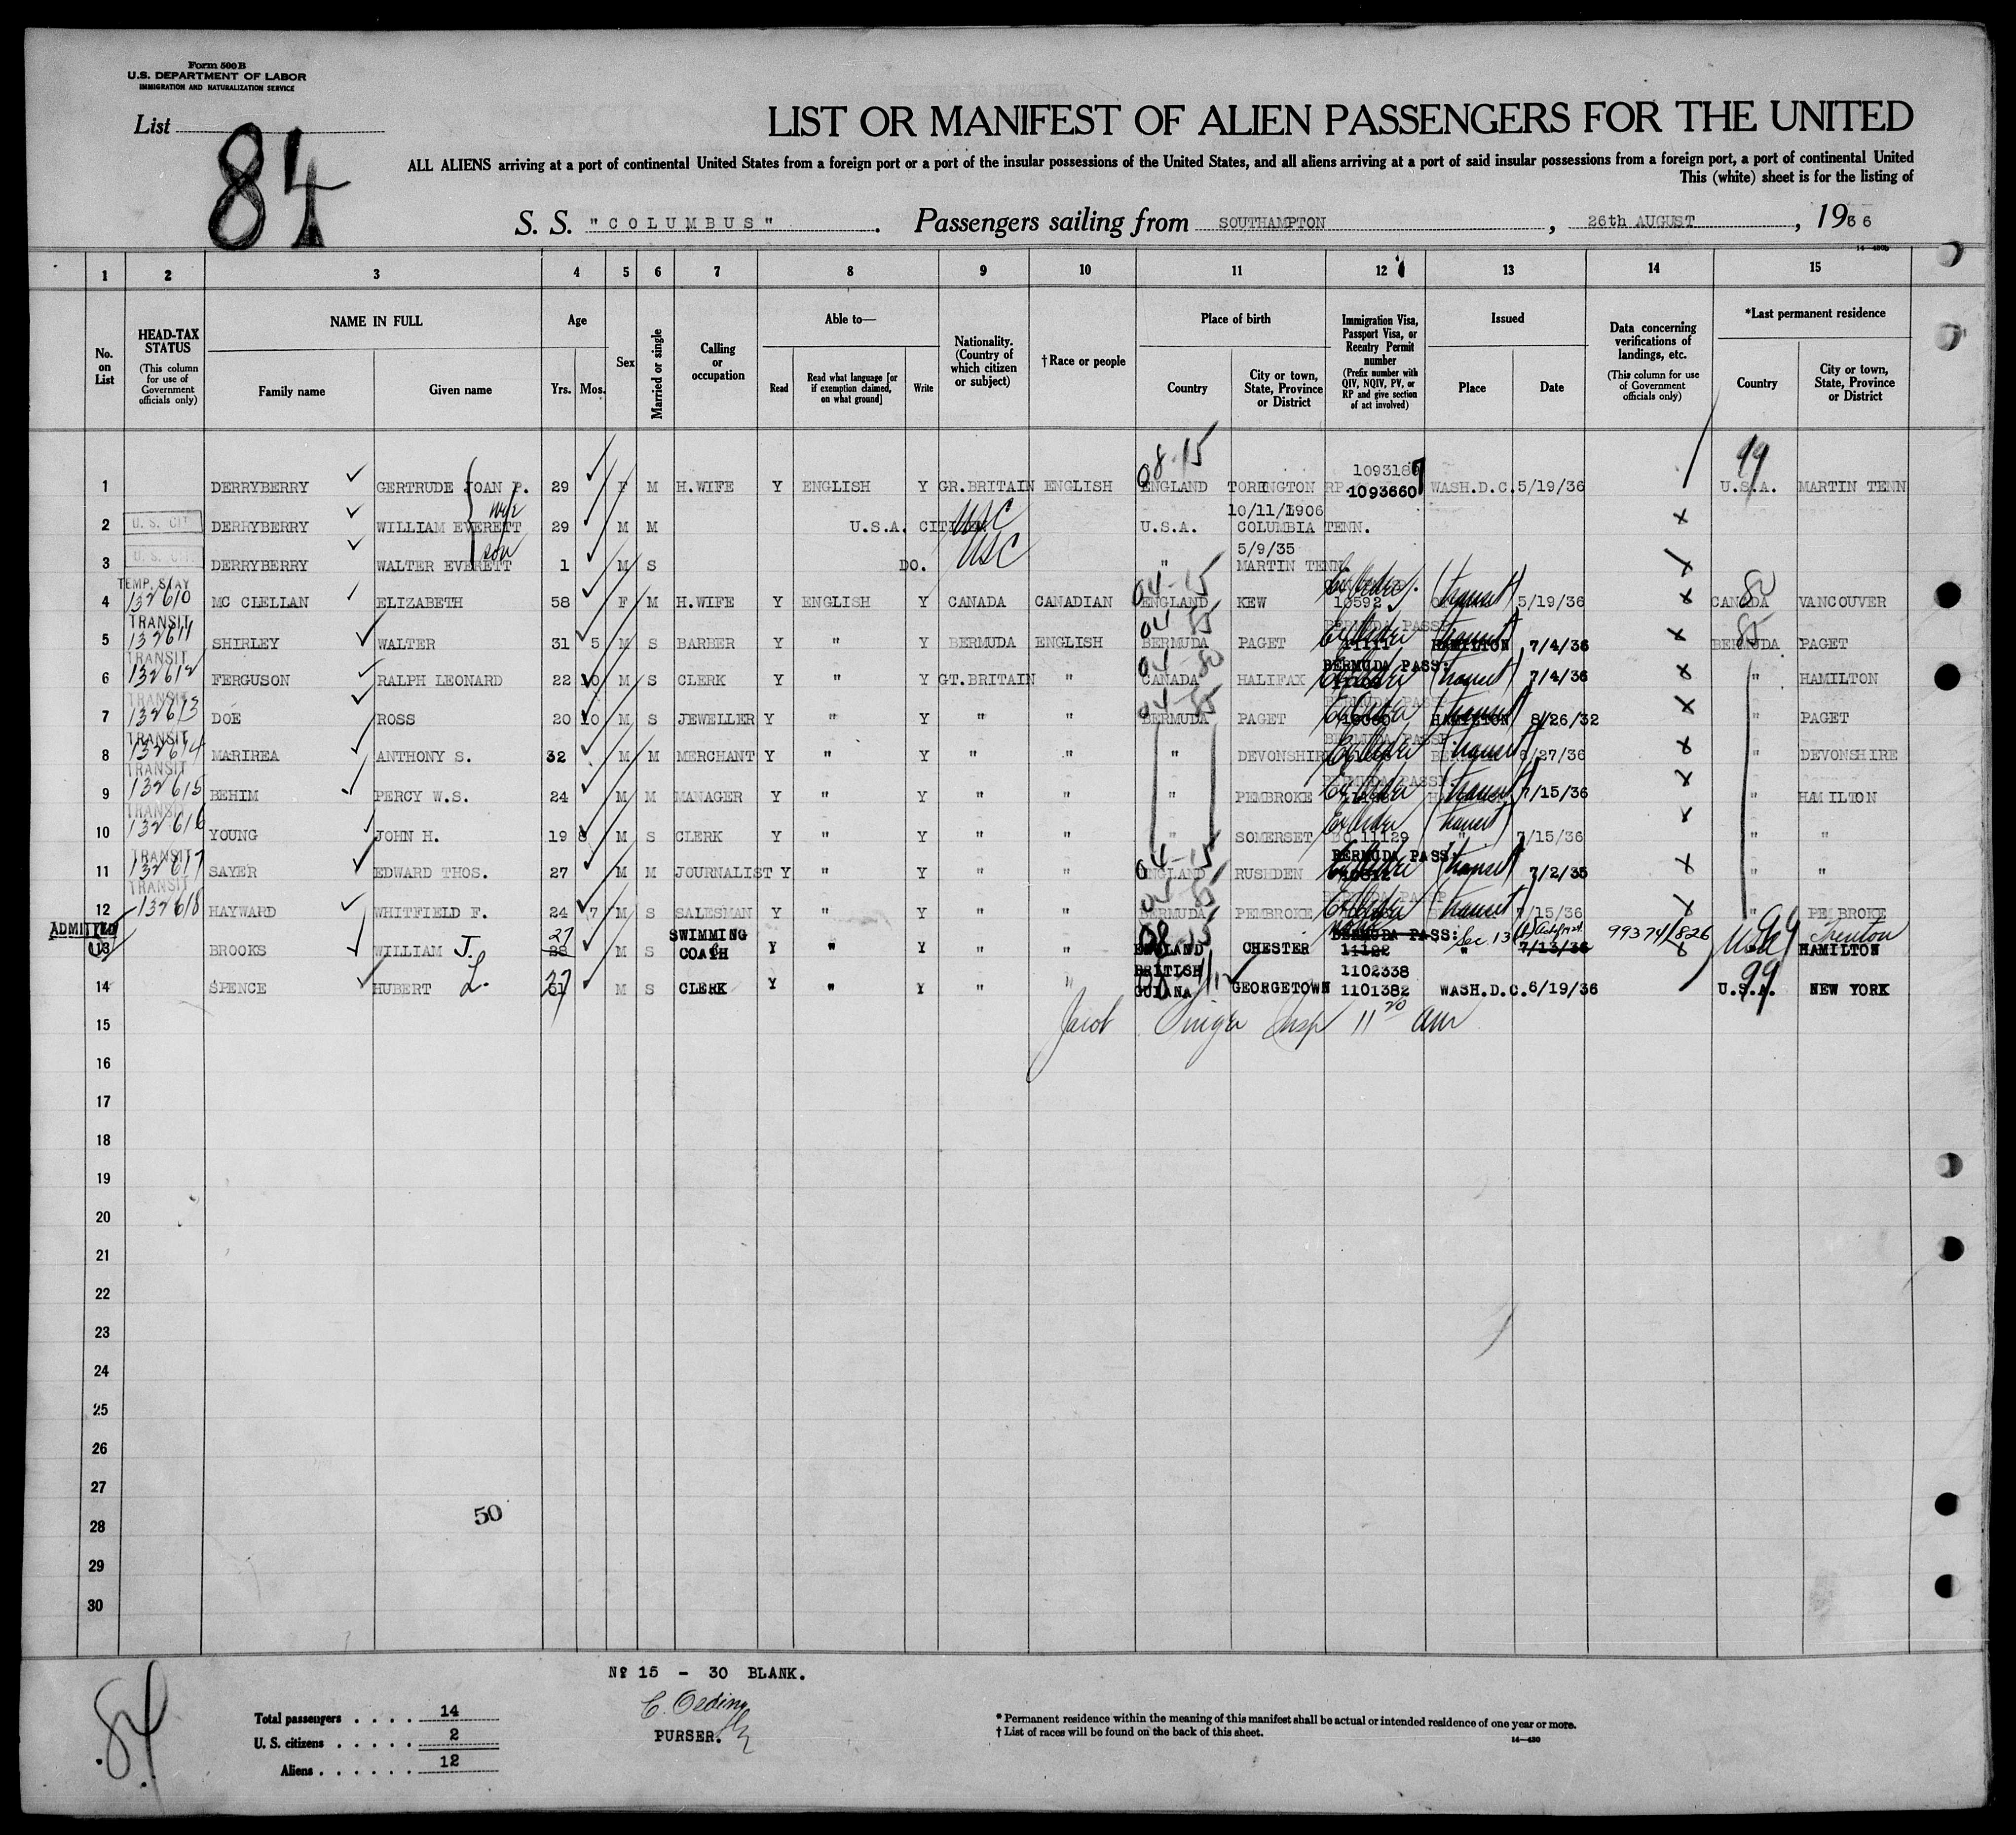 Form 500 B
U.S. DEPARTMENT OF LABOR
IMMIGRATION AND NATURALIZATION SERVICE
List 84
LIST OR MANIFEST OF ALIEN PASSENGERS FOR THE UNITED
ALL ALIENS arriving at a port of continental United States from a foreign port or a port of the insular possessions of the United States, and all aliens arriving at a port of said insular possessions from a foreign port, a port of continental United
This (white) sheet is for the listing of
S. S. "COLUMBUS". Passengers sailing from SOUTHAMPTON, 26th AUGUST, 1936
1 2 3 4 5 6 7 8 9 10 11 12 13 14 15
No. on List
HEAD-TAX STATUS (This column for use of Government officials only)
NAME IN FULL
Family name
Given name
Age
Yrs. Mos.
Sex
Married or single
Calling or occupation
Able to—
Read
Read what language [or if exemption claimed, on what ground]
Write
Nationality. (Country of which citizen or subject)
† Race or people
Place of birth
Country
City or town, State, Province or District
Immigration Visa, Passport Visa, or Reentry Permit number (Prefix number with QIV, NQIV, PV, or RP and give section of act involved)
Issued
Place
Date
Data concerning verifications of landings, etc. (This column for use of Government officials only)
*Last permanent residence
Country
City or town, State, Province or District
08-15 99
1 DERRYBERRY GERTRUDE JOAN P. 29 F M H.WIFE Y ENGLISH Y GR.BRITAIN ENGLISH ENGLAND TORRINGTON RP 1093660 WASH.D.C. 5/19/36 U.S.A. MARTIN TENN
wife 10/11/1906
2 U.S. CIT DERRYBERRY WILLIAM EVERETT 29 M M U.S.A. CITIZEN USC U.S.A. COLUMBIA TENN.
son 5/9/35
3 U.S. CIT. DERRYBERRY WALTER EVERETT 1 M S DO. USC " MARTIN TENN.
TEMP. STAY 132610 04-15
4 MC CLELLAN ELIZABETH 58 F M H.WIFE Y ENGLISH Y CANADA CANADIAN ENGLAND KEW 10592 transit 5/19/36 CANADA VANCOUVER
TRANSIT 132611 04-85 BERMUDA PASS: 85
5 SHIRLEY WALTER 31 5 M S BARBER Y " Y BERMUDA ENGLISH BERMUDA PAGET 11111 HAMILTON 7/4/36 BERMUDA PAGET
TRANSIT 132612 04-80 BERMUDA PASS:
6 FERGUSON RALPH LEONARD 22 10 M S CLERK Y " Y GT.BRITAIN " CANADA HALIFAX transit 7/4/36 " HAMILTON
TRANSIT 132613 04-85
7 DOE ROSS 20 10 M S JEWELLER Y " Y " " BERMUDA PAGET HAMILTON 8/26/32 " PAGET
TRANSIT 132614
8 MARIREA ANTHONY S. 32 M M MERCHANT Y " Y " " " DEVONSHIRE transit /27/36 " DEVONSHIRE
TRANSIT 132615
9 BEHIM PERCY W.S. 24 M M MANAGER Y " Y " " " PEMBROKE transit 7/15/36 " HAMILTON
TRANSIT 132616
10 YOUNG JOHN H. 19 8 M S CLERK Y " Y " " " SOMERSET 11129 transit " 7/15/36 " "
TRANSIT 132617 04-15 BERMUDA PASS:
11 SAYER EDWARD THOS. 27 M M JOURNALIST Y " Y " " ENGLAND RUSHDEN transit 7/2/35 " "
TRANSIT 132618 04-85
12 HAYWARD WHITFIELD F. 24 7 M S SALESMAN Y " Y " " BERMUDA PEMBROKE transit 7/15/36 " PEMBROKE
ADMITTED 27 SWIMMING 08-15 BERMUDA PASS: Sec. 13 99374/826 99 Trenton
13 BROOKS WILLIAM J. 28 M S COATH Y " Y " " ENGLAND CHESTER 11122 " 7/13/36 USA HAMILTON
BRITISH 1102338 99
14 SPENCE HUBERT L. 27 31 M S CLERK Y " Y " " GUIANA GEORGETOWN 1101382 WASH.D.C. 6/19/36 U.S.A. NEW YORK
15 Jacob Insp 11 20 am
16
17
18
19
20
21
22
23
24
25
26
27
50
28
29
30
84
Nº 15 - 30 BLANK.
C. Oeding
PURSER.
Total passengers . . . . 14
U. S. citizens . . . . . 2
Aliens . . . . . . 12
* Permanent residence within the meaning of this manifest shall be actual or intended residence of one year or more.
† List of races will be found on the back of this sheet.
14—430